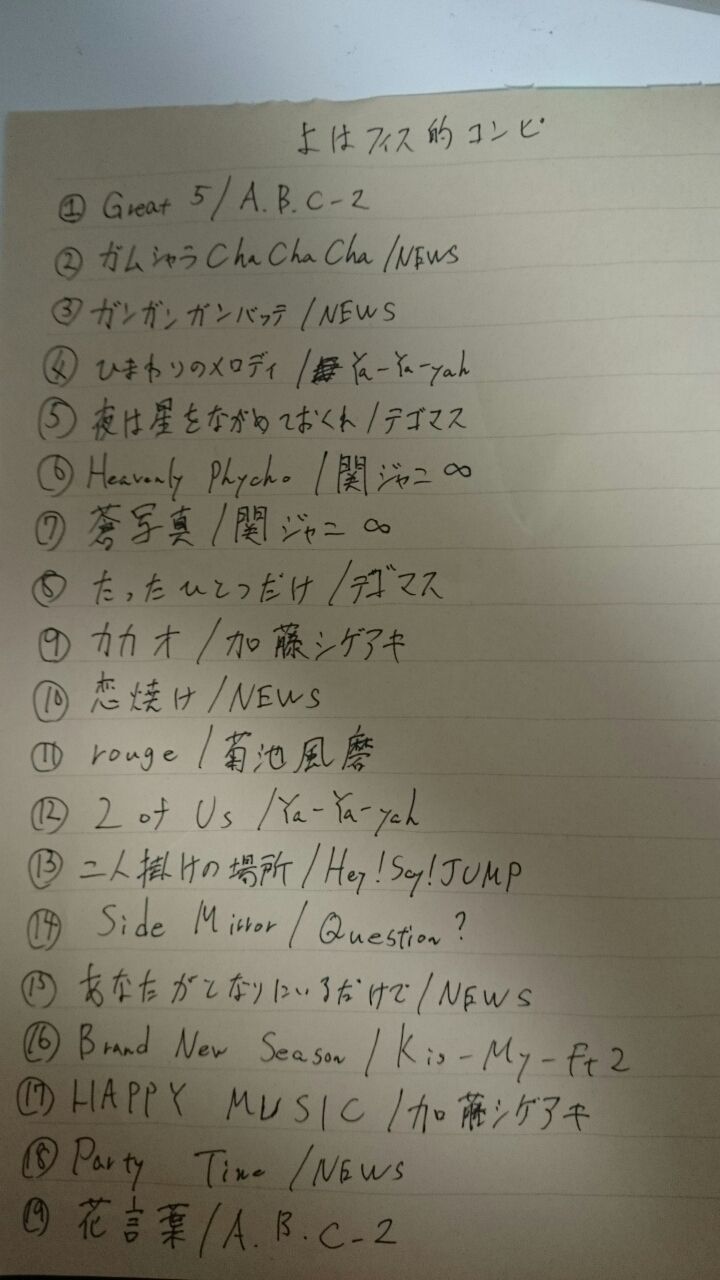 よはフィス的コンピ
① Great 5/A.B.C-Z
② ガムシャラ Cha Cha Cha/NEWS
③ ガンガンガンバッテ/NEWS
④ ひまわりのメロディ/Ya-Ya-yah
⑤ 夜は星をながめておくれ/テゴマス
⑥ Heavenly Phycho/関ジャニ∞
⑦ 蒼写真/関ジャニ∞
⑧ たったひとつだけ/テゴマス
⑨ カカオ/加藤シゲアキ
⑩ 恋焼け/NEWS
⑪ rouge/菊池風磨
⑫ 2 of Us/Ya-Ya-yah
⑬ 二人掛けの場所/Hey!Say!JUMP
⑭ Side Mirror/Question?
⑮ あなたがとなりにいるだけで/NEWS
⑯ Brand New Season/Kis-My-Ft2
⑰ HAPPY MUSIC/加藤シゲアキ
⑱ Party Time/NEWS
⑲ 花言葉/A.B.C-Z